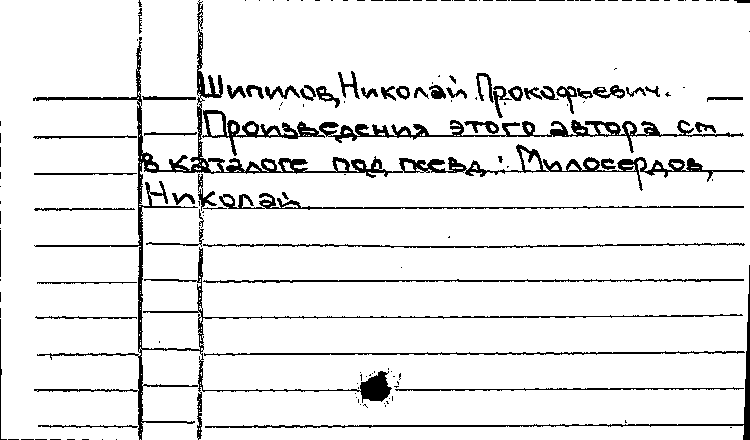 Шипилов, Николай Прокофьевич.
Произведения этого автора см.
в каталоге под псевд.: Милосердов,
Николай